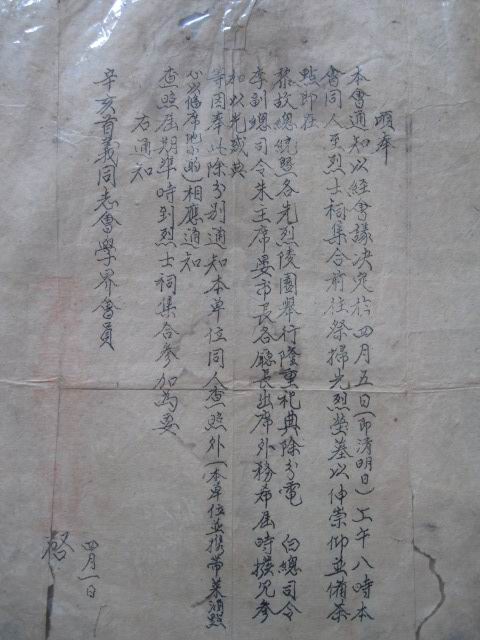 頃奉
本會通知以經會議决定於四月五日(即清明日)上午八時本
會同人至烈士祠集合前往祭掃先烈塋墓以伸崇仰並備茶
點即在
黎故總統暨各先烈陵園舉行隆重祀典除分電 白總司令
李副總司令朱主席晏市長各廳長出席外務希屆時撥冗參
加以光盛典
等因奉此除分別通知本單位同人查照外(本單位並攜帶
相應通知
查照屆期準時到烈士祠集合參加為要
右通知
辛亥首義同志會學界會員
啓 四月一日